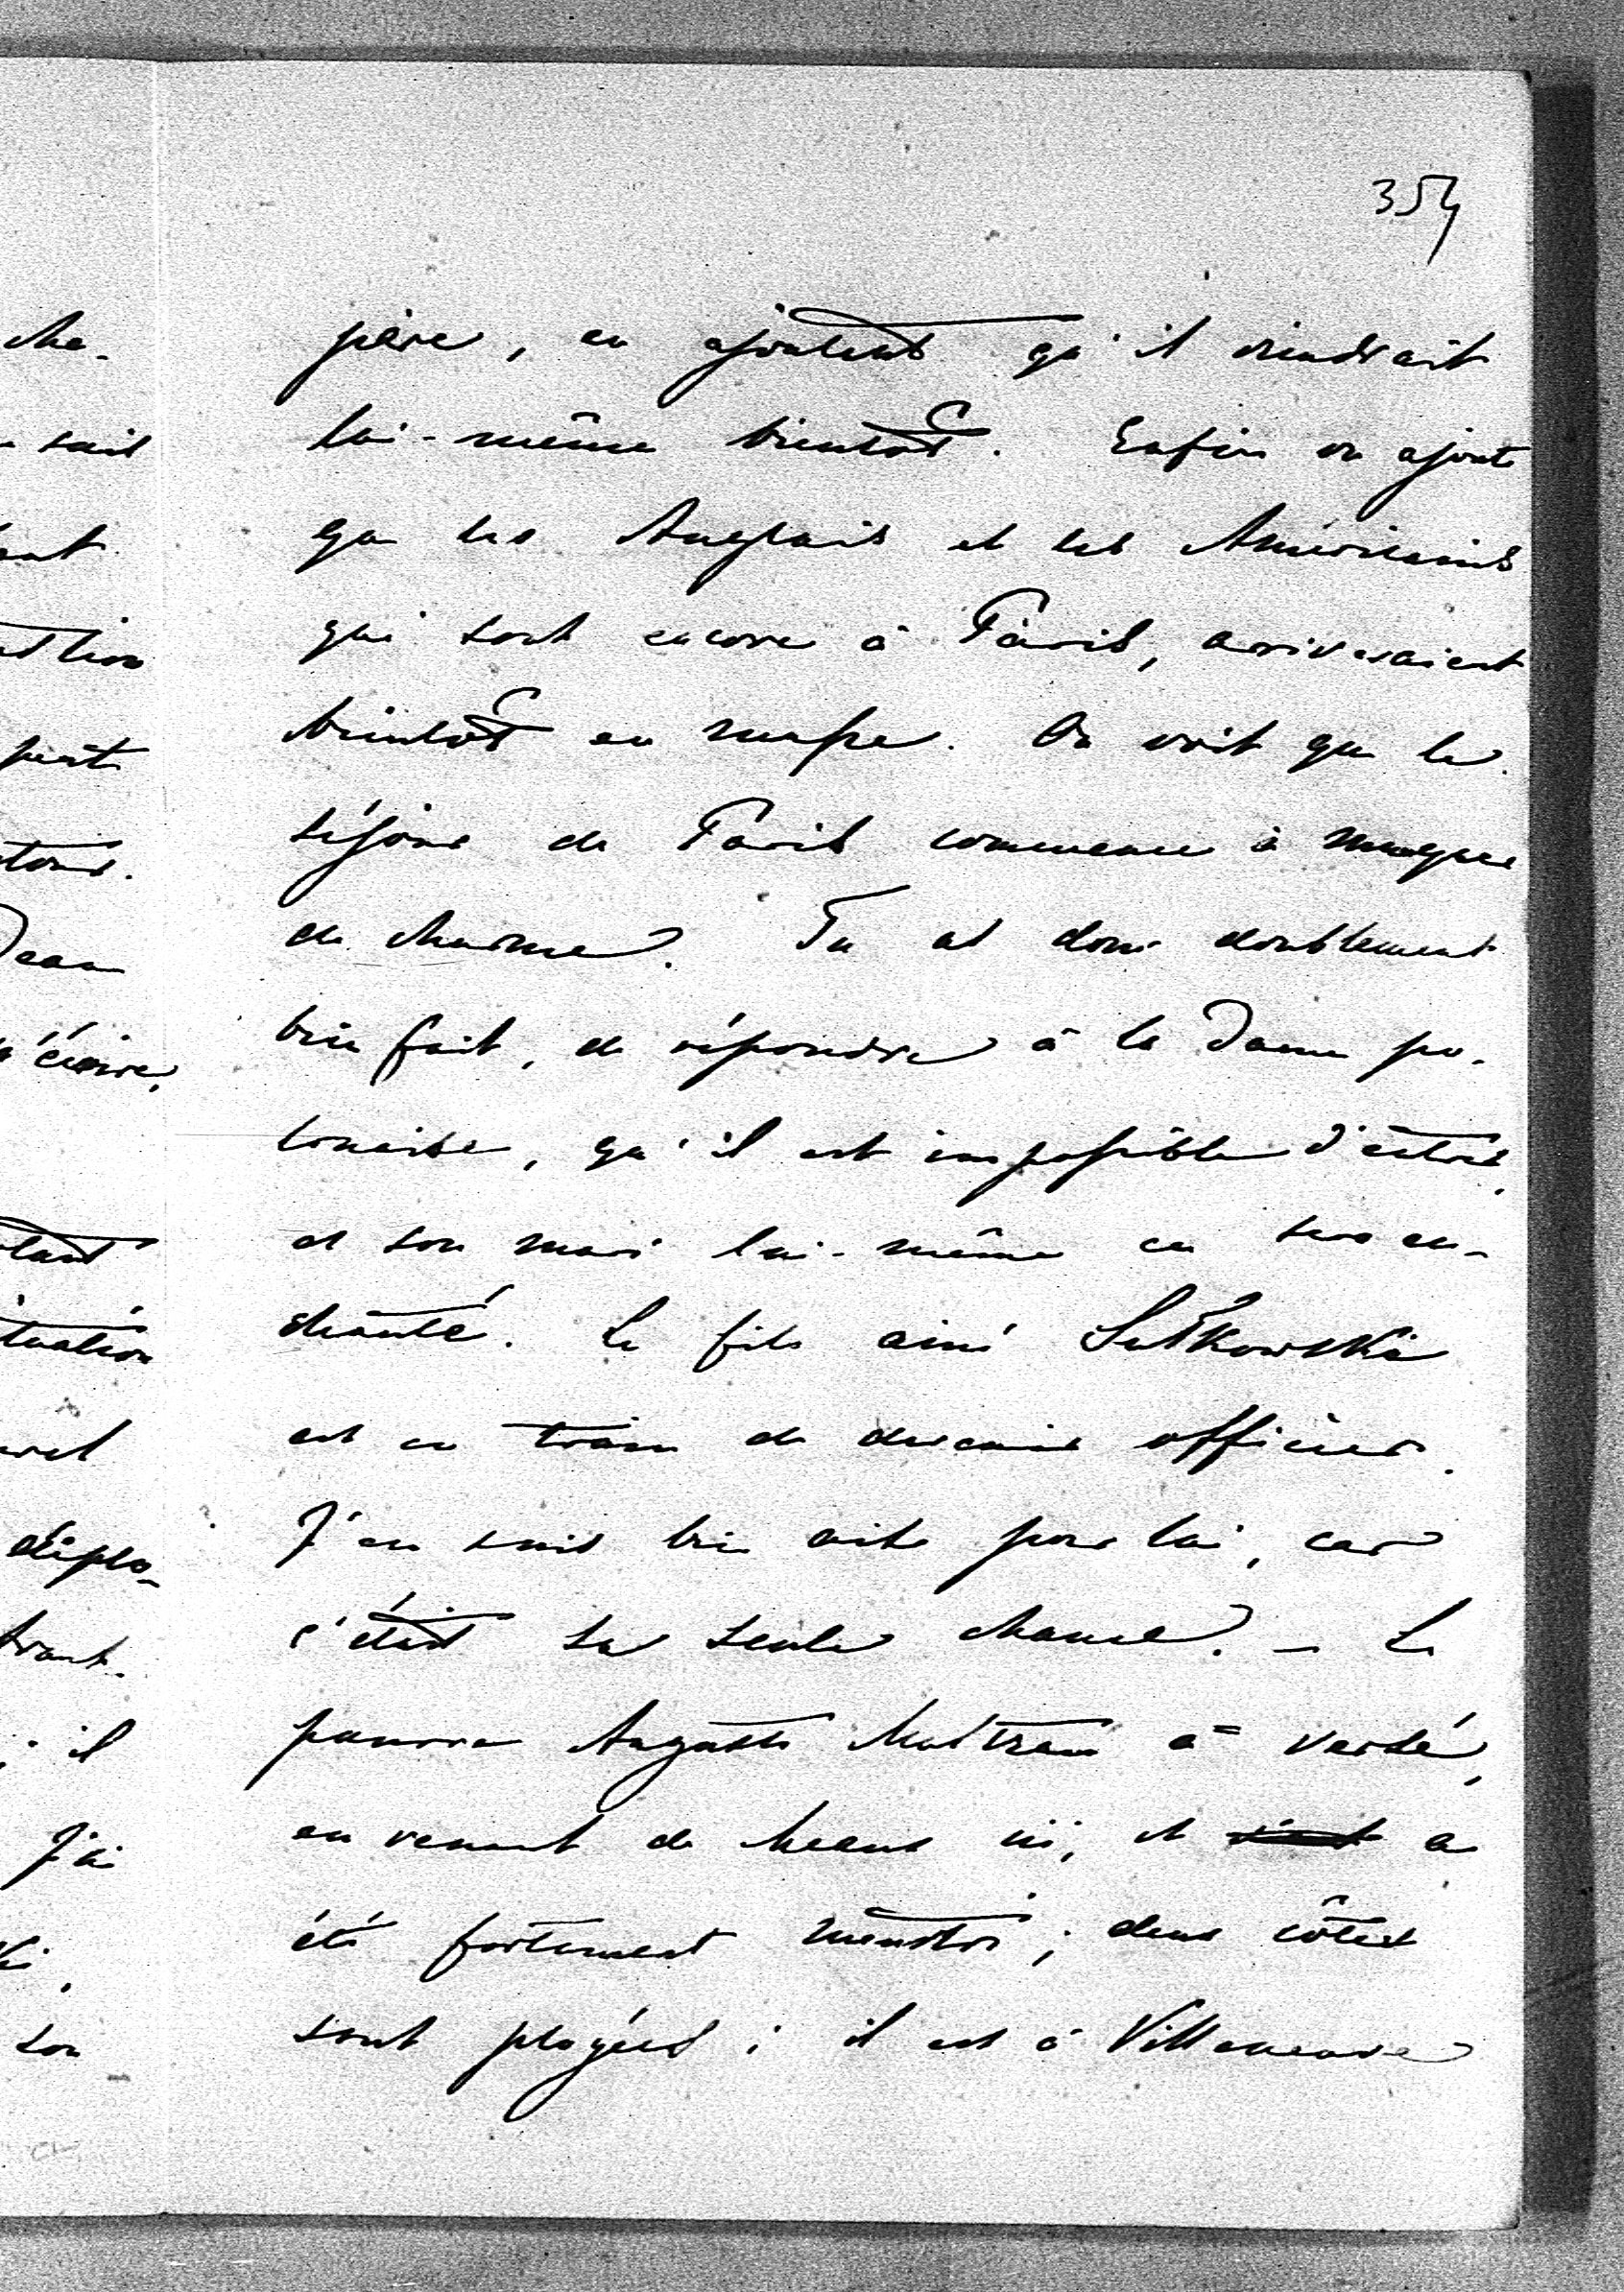 354
père, en ajoutant qu'il viendrait
lui-même bientôt. Enfin on ajoute
que les Anglais et les Américains
qui sont encore à Paris, arriveraient
bientôt en masse. On voit que le
séjour de Paris commence à manquer
de charme. Tu as donc doublement
bien fait, de répondre à la Dame po-
lonaise, qu'il est impossible d'
et son mari lui-même en sera en-
chanté. Le fils ainé Sułkowski
est en train de devenir officier.
J'en suis bien aise pour lui, car
c'était sa seule chance. – Le
pauvre Auguste a versé,
en venant de Meaux ici, et a
été fortement meurtri; deux côtes
sont ployées; il est à Villeneuve
che-
sait
peut
tous.
Jean
m'écrire,
tuation
déplo-
; il
J'ai
son